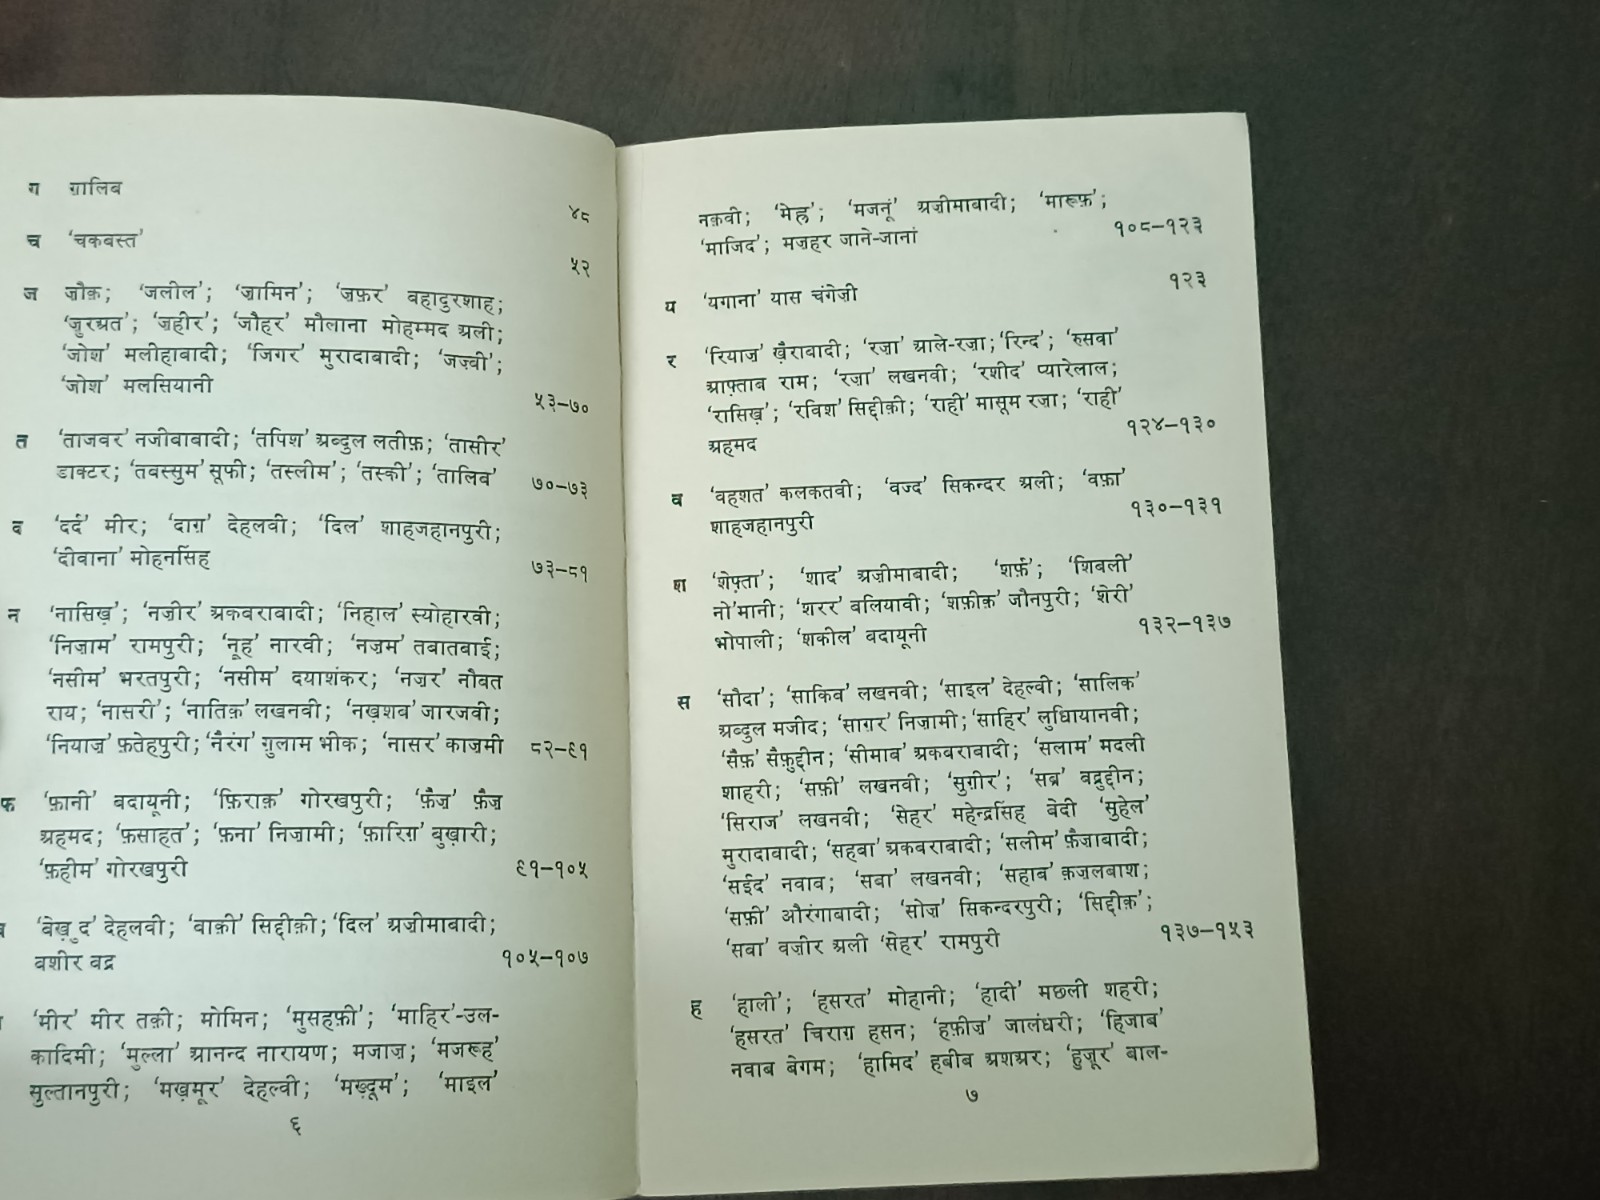 ग ग़ालिब
४८
च ‘चकबस्त’
५२
ज ज़ौक़; ‘जलील’; ‘ज़ामिन’; ‘ज़फ़र’ बहादुरशाह;
‘जुरअत’; ‘ज़हीर’; ‘जौहर’ मौलाना मोहम्मद अली;
‘जोश’ मलीहाबादी; ‘जिगर’ मुरादाबादी; ‘जज़्बी’;
‘जोश’ मलसियानी
५३–७०
त ‘ताजवर’ नजीबाबादी; ‘तपिश’ अब्दुल लतीफ़; ‘तासीर’
डाक्टर; ‘तबस्सुम’ सूफी; ‘तस्लीम’; ‘तस्की’; ‘तालिब’ ७०–७३
द ‘दर्द’ मीर; ‘दाग़’ देहलवी; ‘दिल’ शाहजहानपुरी;
‘दीवाना’ मोहनसिंह ७३–८१
न ‘नासिख़’; ‘नज़ीर’ अकबराबादी; ‘निहाल’ स्योहारवी;
‘निज़ाम’ रामपुरी; ‘नूह’ नारवी; ‘नज़म’ तबातबाई;
‘नसीम’ भरतपुरी; ‘नसीम’ दयाशंकर; ‘नज़र’ नौबत
राय; ‘नासरी’; ‘नातिक़’ लखनवी; ‘नख़शब’ जारजवी;
‘नियाज़’ फ़तेहपुरी; ‘नैरंग’ ग़ुलाम भीक; ‘नासर’ काज़मी ८२–९१
फ ‘फ़ानी’ बदायूनी; ‘फ़िराक़’ गोरखपुरी; ‘फ़ैज़’ फ़ैज़
अहमद; ‘फ़साहत’; ‘फ़ना’ निज़ामी; ‘फ़ारिग़’ बुख़ारी;
‘फ़हीम’ गोरखपुरी ९१–१०५
ब ‘बेख़ुद’ देहलवी; ‘बाक़ी’ सिद्दीक़ी; ‘दिल’ अज़ीमाबादी;
बशीर बद्र १०५–१०७
‘मीर’ मीर तक़ी; मोमिन; ‘मुसहफ़ी’; ‘माहिर’-उल-
कादिमी; ‘मुल्ला’ आनन्द नारायण; मजाज़; ‘मजरूह’
सुल्तानपुरी; ‘मख़मूर’ देहल्वी; ‘मख़्दूम’; ‘माइल’
६
नक़वी; ‘मेह्र’; ‘मजनूं’ अज़ीमाबादी; ‘मारूफ़’;
‘माजिद’; मज़हर जाने-जानां १०८–१२३
य ‘यगाना’ यास चंगेज़ी १२३
र ‘रियाज़’ ख़ैराबादी; ‘रज़ा’ आले-रज़ा; ‘रिन्द’; ‘रुसवा’
आफ़्ताब राम; ‘रज़ा’ लखनवी; ‘रशीद’ प्यारेलाल;
‘रासिख़’; ‘रविश’ सिद्दीक़ी; ‘राही’ मासूम रज़ा; ‘राही’
अहमद १२४–१३०
व ‘वहशत’ कलकतवी; ‘वज्द’ सिकन्दर अली; ‘वफ़ा’
शाहजहानपुरी १३०–१३१
श ‘शेफ़्ता’; ‘शाद’ अज़ीमाबादी; ‘शर्फ़’; ‘शिबली’
नो’मानी; ‘शरर’ बलियावी; ‘शफ़ीक़’ जौनपुरी; ‘शेरी’
भोपाली; ‘शकील’ बदायूनी १३२–१३७
स ‘सौदा’; ‘साकिब’ लखनवी; ‘साइल’ देहल्वी; ‘सालिक’
अब्दुल मजीद; ‘साग़र’ निज़ामी; ‘साहिर’ लुधियानवी;
‘सैफ़’ सैफ़ुद्दीन; ‘सीमाब’ अकबराबादी; ‘सलाम’ मदली
शाहरी; ‘सफ़ी’ लखनवी; ‘सुग़ीर’; ‘सब्र’ बद्रुद्दीन;
‘सिराज’ लखनवी; ‘सेहर’ महेन्द्रसिंह बेदी ‘सुहेल’
मुरादाबादी; ‘सहबा’ अकबराबादी; ‘सलीम’ फ़ैज़ाबादी;
‘सईद’ नवाब; ‘सबा’ लखनवी; ‘सहाब’ क़ज़लबाश;
‘सफ़ी’ औरंगाबादी; ‘सोज़’ सिकन्दरपुरी; ‘सिद्दीक़’;
‘सबा’ वज़ीर अली ‘सेहर’ रामपुरी १३७–१५३
ह ‘हाली’; ‘हसरत’ मोहानी; ‘हादी’ मछली शहरी;
‘हसरत’ चिराग़ हसन; ‘हफ़ीज़’ जालंधरी; ‘हिजाब’
नवाब बेगम; ‘हामिद’ हबीब अशअर; ‘हुज़ूर’ बाल-
७